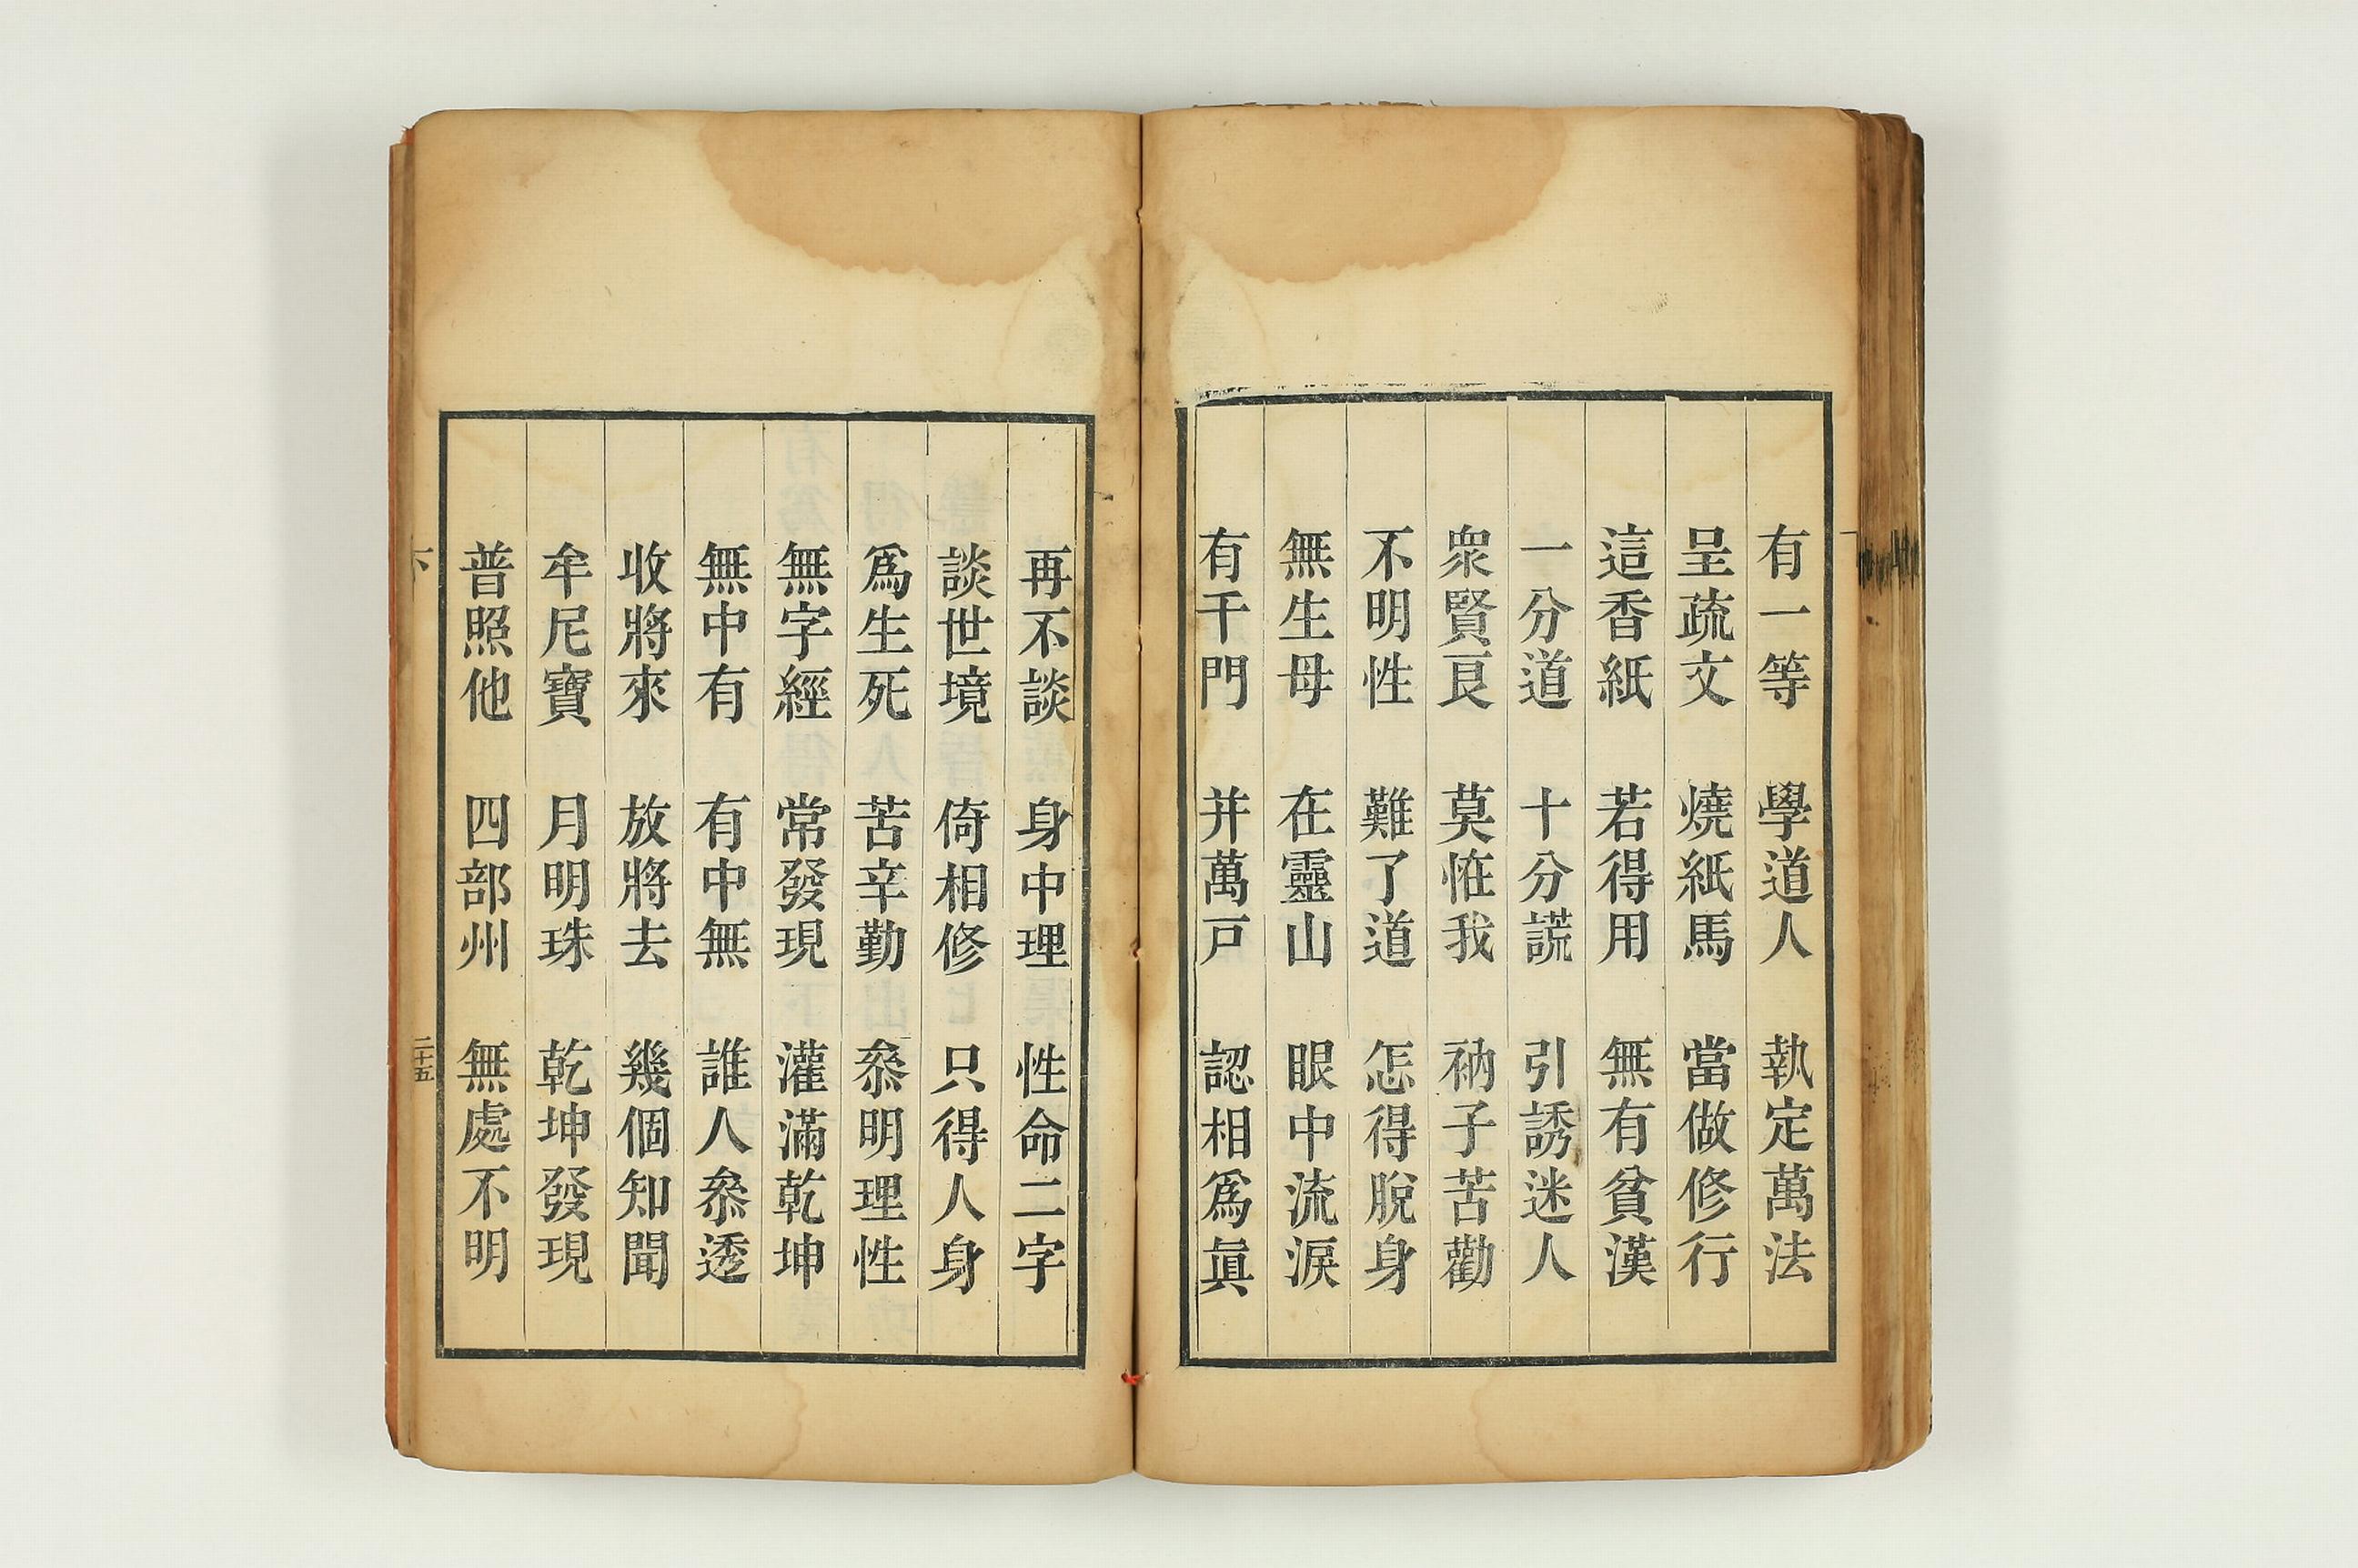 有一等　學道人　執定萬法
呈疏文　燒紙馬　當做修行
這香紙　若得用　無有貧漢
一分道　十分謊　引誘迷人
衆賢良　莫恠我　衲子苦勸
不明性　難了道　怎得脫身
無生母　在靈山　眼中流淚
有千門　并萬戸　認相爲眞
再不談　身中理　性命二字
談世境　倚相修　只得人身
爲生死　苦辛勤　叅明理性
無字經　常發現　灌滿乾坤
無中有　有中無　誰人叅透
收將來　放將去　幾個知聞
牟尼寶　月明珠　乾坤發現
普照他　四部州　無處不明
下　二十五